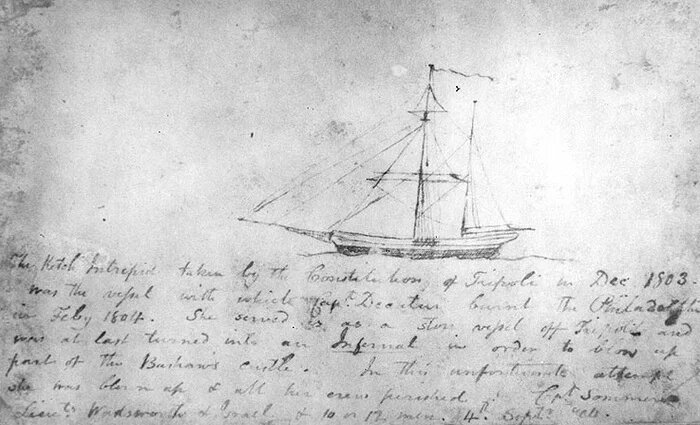 The Ketch Intrepid taken by the Constitution, off Tripoli in Dec 1803.
was the vessel with which Capt. Decatur burnt the Philadelphia
in Feby 1804. She served as a store vessel off Tripoli and
was at last turned into an Infernal in order to blow up
part of the Bashaws castle. In this unfortunate attempt
she was blown up & all her crew perished. Capt Sommers
Lieuts. Wadsworth & Israel & 10 or 12 men. 4th. Sept.